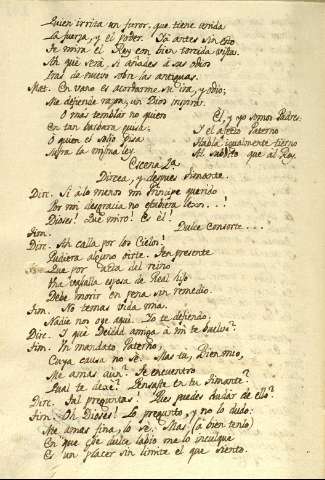 Quien irrita un furor, que tiene unida
La fuerza, y el poder. Yá antes sin esto
Te mira el Rey con bien torcida vista.
Ah que será si añades á sus odios
tras de nuevo sobre las antiguas.
Mat. En vano es acordarme su ira, y odio;
Me defiende razon, un Dios inspira.
O mas temblar no quiero
En tan barbara
O quien el solio pisa
Sufra la misma ley.
El, y yo somos Padres:
Y el afecto Paterno
Habla igualmente tierno
Al subdito que al Rey.
Escena 2a.
Dircea, y despues Timante.
Dirc. Si á lo menos mi Principe querido
Por mi desgracia no estubiera lexos...!
Dioses! Que miro! Es él!
Tim. Dulce Consorte...
Dirc. Ah calla por los Cielos!
Pudiera alguno oirte. Ten presente
Que por del reino
Una vasalla esposa de Real hijo
Debe morir en pena sin remedio.
Tim. No temas vida mia.
Nadie nos oye aqui. Yo te defiendo.
Dirc. Y que Deidad amiga á mi te buelve?
Tim. Un mandato Paterno,
Cuya causa no sé. Mas tu, Bien mio,
Me amas aun? Te encuentro
Qual te dexé? Pensaste en tu Timante?
Dirc. Tal preguntas! Pues puedes dudar de ello?
Tim. Oh Dioses! Lo pregunto, y no lo dudo:
Me amas fina, lo sé. Mas (á bien tenlo)
En que ese dulce labio me lo inculque
Es un placer sin limite el que siento.